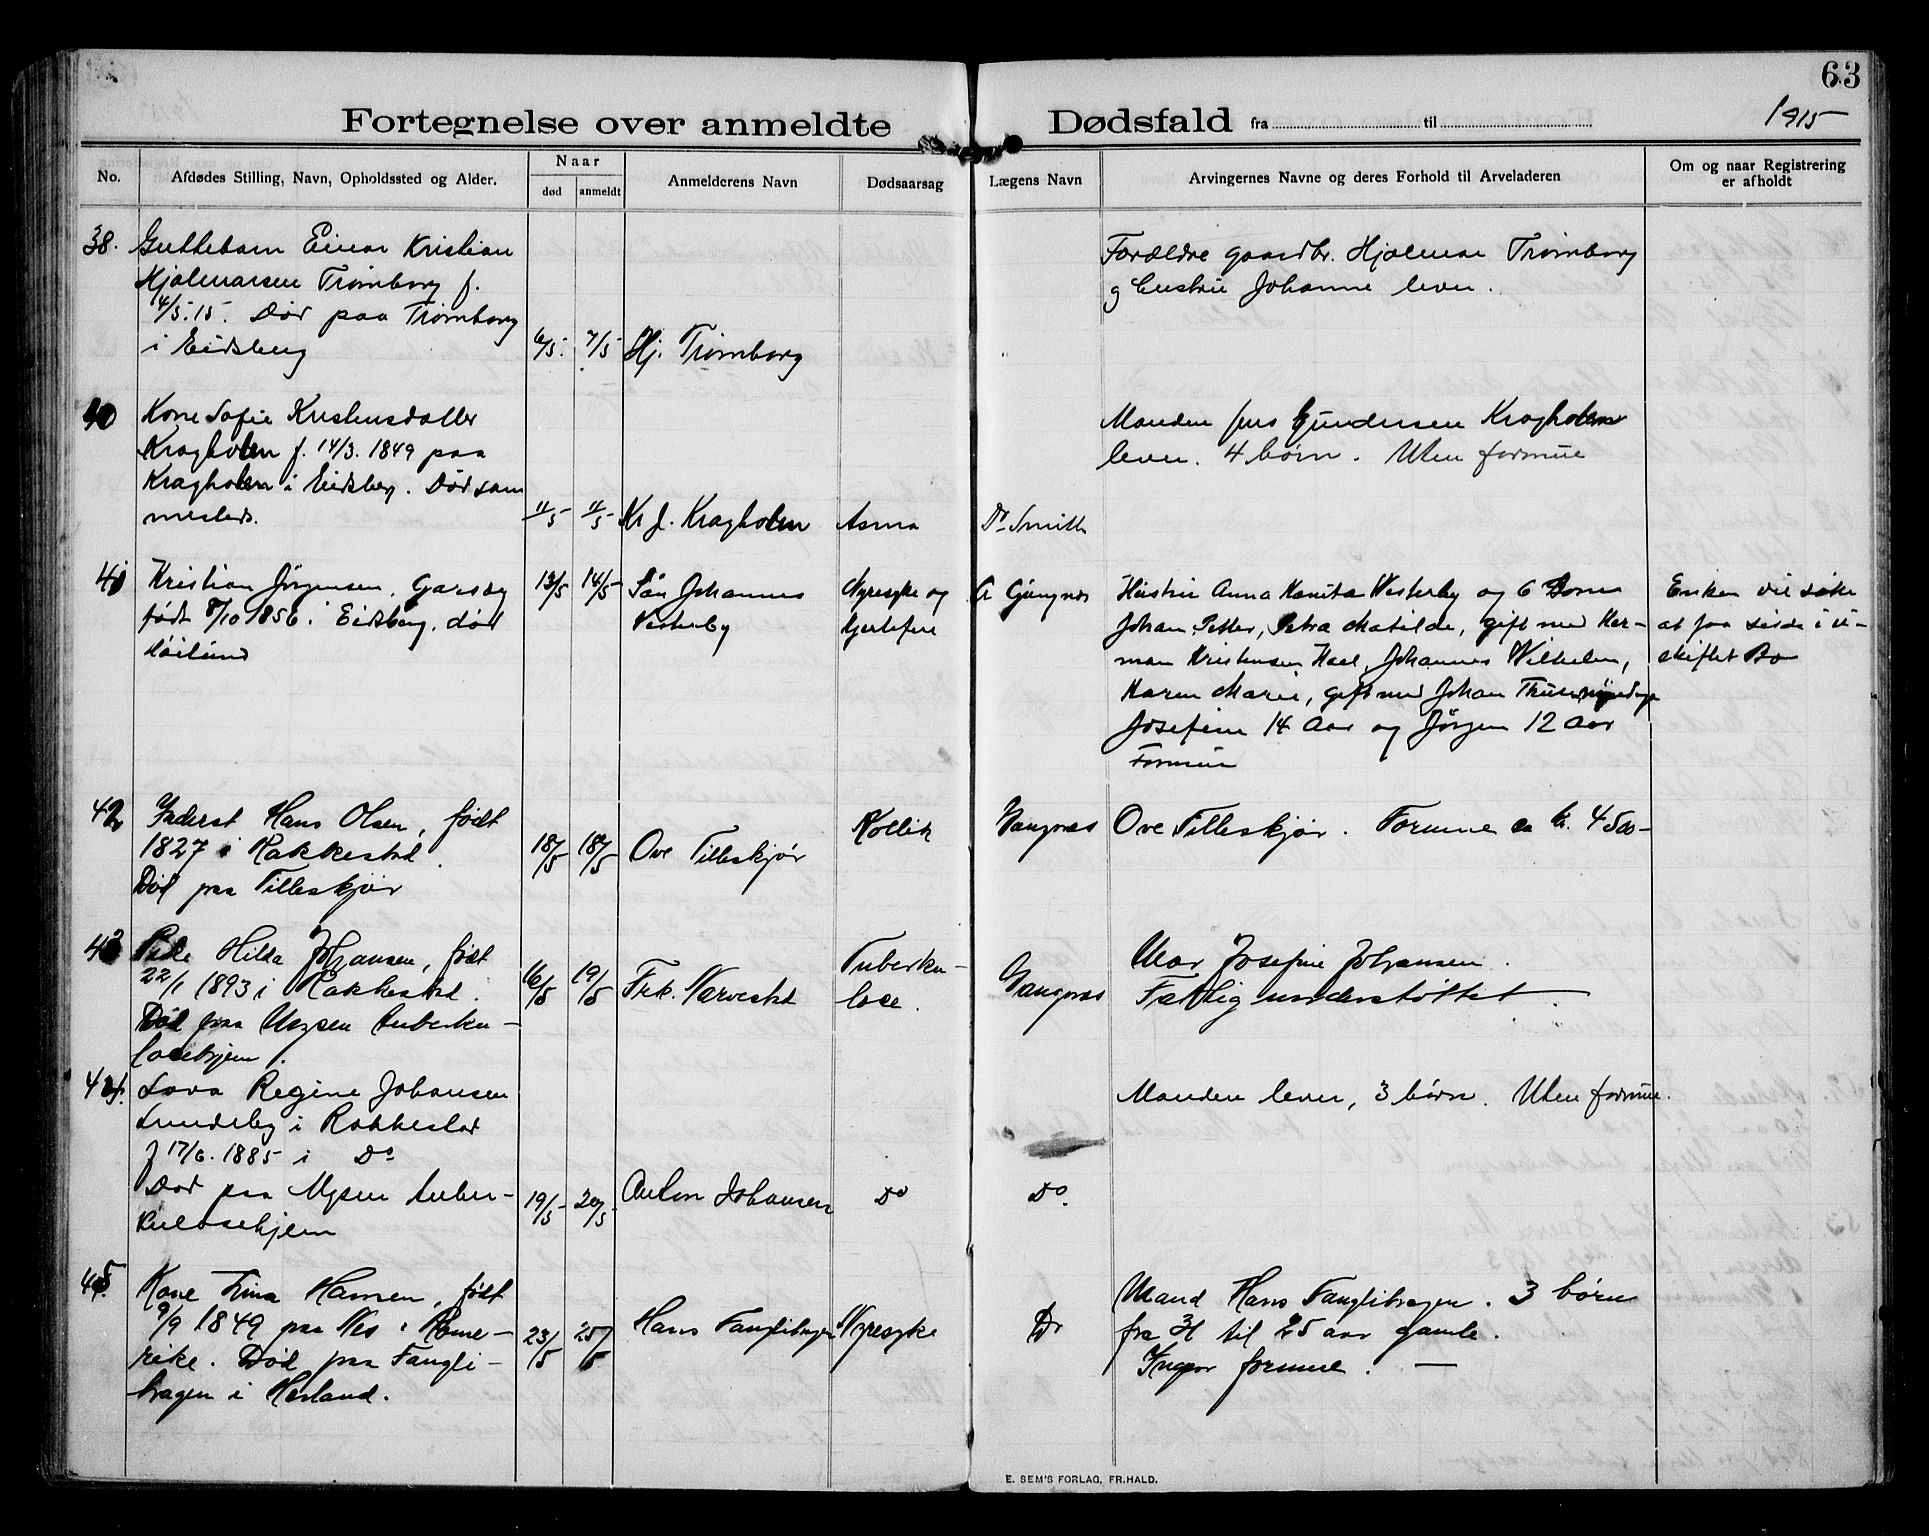 63
1915
Fortegnelse over anmeldte Dødsfald fra til
No.
Afdødes Stilling, Navn, Opholdssted og Alder.
Naar
død
anmeldt
Anmelderens Navn
Dødsaarsag
Lægens Navn
Arvingernes Navne og deres Forhold til Arveladeren
Om og naar Registrering
er afholdt
38.
Guttebarn Einar Kristian
Hjalmarsen Trømborg f.
4/5.15. Død paa Trømborg
i Eidsberg
6/5.
7/5
Hj. Trømborg
Forældre gaardbr. Hjalmar Trømborg
og hustru Johanne lever.
40
Kone Sofie Kristensdatter
Kragholen f. 14/3. 1849 paa
Kragholen i Eidsberg. Død sam
mesteds.
11/5
11/5
Kr J. Kragholen
Asma
Dr Smith
Manden Jens Gundersen Kragholen
lever. 4 børn. Uten formue
41
Kristian Jørgensen, Gardbg
født 8/10 1856 i Eidsberg, død
13/5
14/5
Søn Johannes
Vesterby
Nyresyke og
hjertefeil
Hustru Anna Vesterby og 6 Born
Johan Petter, Petra Matilde, gift med Her-
man Kristensen Johannes Wilhelm,
Karen Marie, gift med Johan
Josefine 14 Aar og Jörgen 12 Aar
Formue
Enken vil söke
at faa sidde i u-
skiftet Bo
42
Inderst Hans Olsen, født
1827 i Rakkestad.
Død paa Tilleskjør
18/5
18/5
Ove Tilleskjør
Kollik
Vangsnæs
Ove Tilleskjør. Formue ca kr. 4500-
43
Pike Hilda Johansen, født
22/1 1893 i Rakkestad.
Død paa Mysen tuberku-
losehjem.
16/5
19/5
Frk. Narvestad
Tuberku-
lose.
Mor Josefine Johansen.
Fattig understøttet.
44.
Lova Regine Johansen
Lundeby i Rakkestad
f 17/6. 1885 i Do
Død paa Mysen tuber-
kulosehjem
19/5
20/5
Anton Johansen
Do
Do.
Manden lever, 3 børn. Uten formue.
45.
Kone Lina Hansen, født
9/9 1849 paa Nes i Rome-
rike. Død paa Fangli-
bragen i Herland.
23/5
25/5
Hans Fanglibragen
Nyresyke
Do
Mand Hans Fanglibragen. 3 børn
fra til 25 aar gamle.
Ingen formue. —
E. SEM'S FORLAG, FR.HALD.